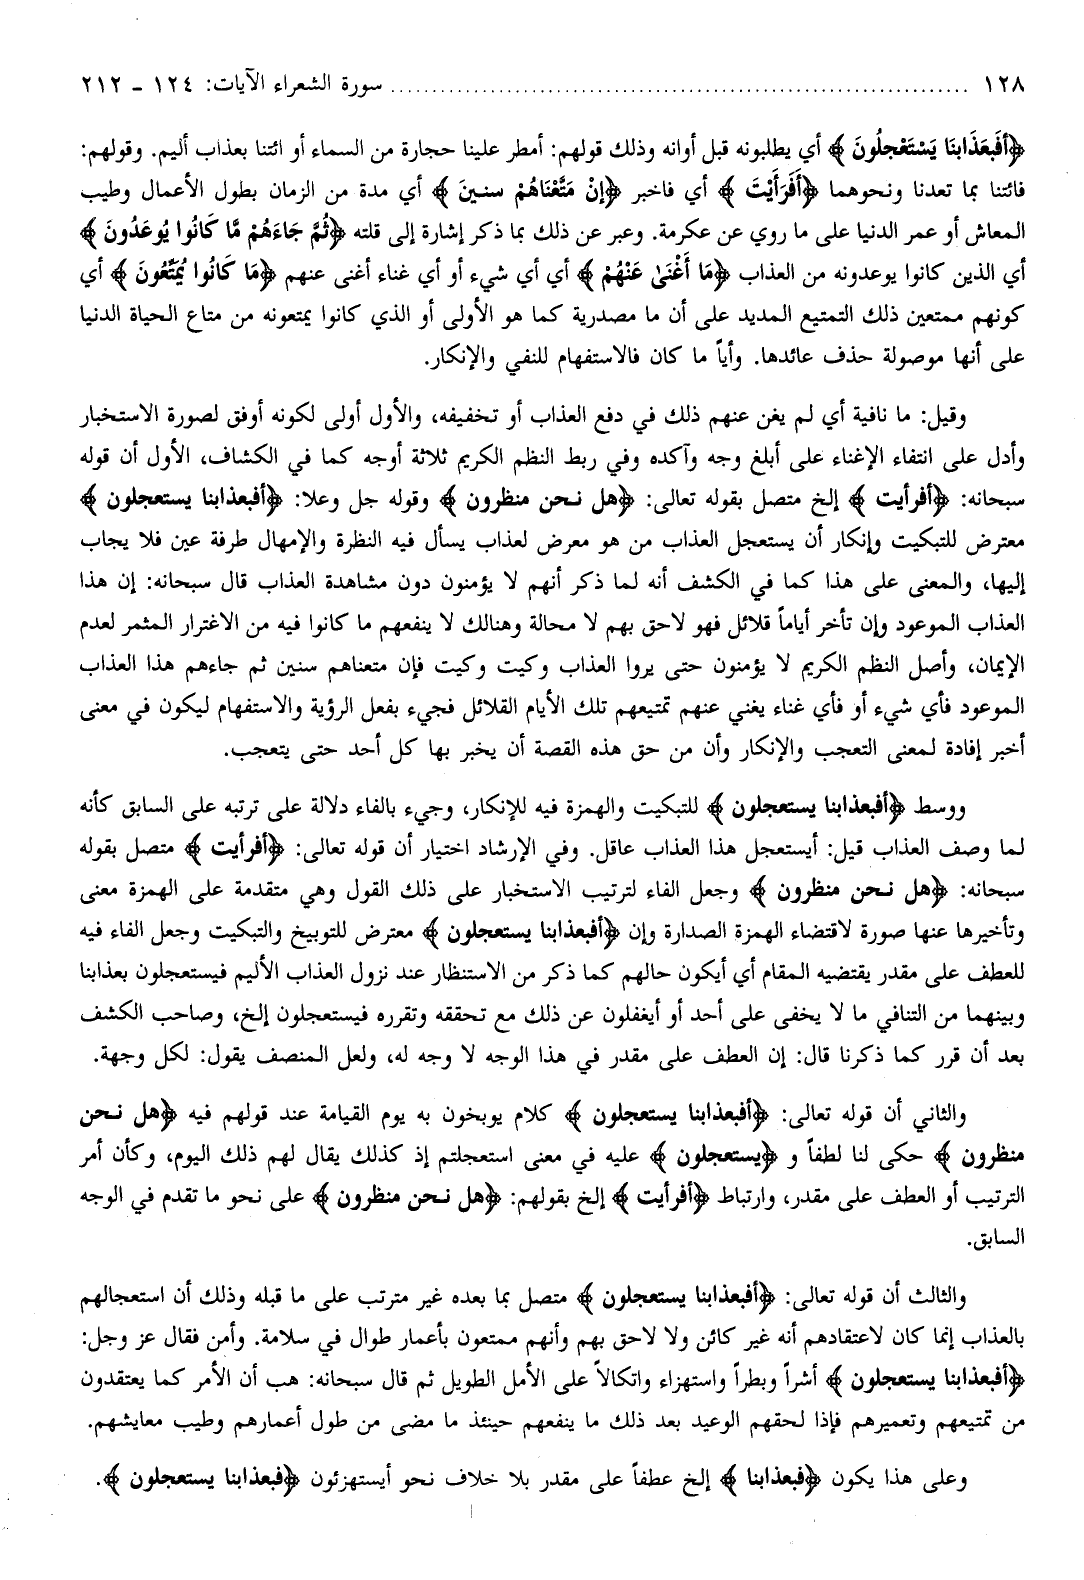 ١٢٨ ........................................................................ سورة الشعراء الآيات: ١٢٤ ـ ٢١٢
﴿أَفَبِعَذَابِنَا يَسْتَعْجِلُونَ﴾ أي يطلبونه قبل أوانه وذلك قولهم: أمطر علينا حجارة من السماء أو ائتنا بعذاب أليم. وقولهم:
فائتنا بما تعدنا ونحوهما ﴿أَفَرَأَيْتَ﴾ أي فاخبر ﴿إِنْ مَتَّعْنَاهُمْ سنينَ﴾ أي مدة من الزمان بطول الأعمال وطيب
المعاش أو عمر الدنيا على ما روي عن عكرمة. وعبر عن ذلك بما ذكر إشارة إلى قلته ﴿ثُمَّ جَاءَهُمْ مَّا كَانُوا يُوعَدُونَ﴾
أي الذين كانوا يوعدونه من العذاب ﴿مَا أَغْنَىٰ عَنْهُمْ﴾ أي أي شيء أو أي غناء أغنى عنهم ﴿مَا كَانُوا يُمَتَّعُونَ﴾ أي
كونهم ممتعين ذلك التمتيع المديد على أن ما مصدرية كما هو الأولى أو الذي كانوا يمتعونه من متاع الحياة الدنيا
على أنها موصولة حذف عائدها. وأياً ما كان فالاستفهام للنفي والإنكار.
وقيل: ما نافية أي لم يغن عنهم ذلك في دفع العذاب أو تخفيفه، والأول أولى لكونه أوفق لصورة الاستخبار
وأدل على انتفاء الإغناء على أبلغ وجه وآكده وفي ربط النظم الكريم ثلاثة أوجه كما في الكشاف، الأول أن قوله
سبحانه: ﴿أفرأيت﴾ إلخ متصل بقوله تعالى: ﴿هل نحن منظرون﴾ وقوله جل وعلا: ﴿أفبعذابنا يستعجلون﴾
معترض للتبكيت وإنكار أن يستعجل العذاب من هو معرض لعذاب يسأل فيه النظرة والإمهال طرفة عين فلا يجاب
إليها، والمعنى على هذا كما في الكشف أنه لما ذكر أنهم لا يؤمنون دون مشاهدة العذاب قال سبحانه: إن هذا
العذاب الموعود وإن تأخر أياماً قلائل فهو لاحق بهم لا محالة وهنالك لا ينفعهم ما كانوا فيه من الاغترار المثمر لعدم
الإيمان، وأصل النظم الكريم لا يؤمنون حتى يروا العذاب وكيت وكيت فإن متعناهم سنين ثم جاءهم هذا العذاب
الموعود فأي شيء أو فأي غناء يغني عنهم تمتيعهم تلك الأيام القلائل فجيء بفعل الرؤية والاستفهام ليكون في معنى
أخبر إفادة لمعنى التعجب والإنكار وأن من حق هذه القصة أن يخبر بها كل أحد حتى يتعجب.
ووسط ﴿أفبعذابنا يستعجلون﴾ للتبكيت والهمزة فيه للإنكار، وجيء بالفاء دلالة على ترتبه على السابق كأنه
لما وصف العذاب قيل: أيستعجل هذا العذاب عاقل. وفي الإرشاد اختيار أن قوله تعالى: ﴿أفرأيت﴾ متصل بقوله
سبحانه: ﴿هل نحن منظرون﴾ وجعل الفاء لترتيب الاستخبار على ذلك القول وهي متقدمة على الهمزة معنى
وتأخيرها عنها صورة لاقتضاء الهمزة الصدارة وإن ﴿أفبعذابنا يستعجلون﴾ معترض للتوبيخ والتبكيت وجعل الفاء فيه
للعطف على مقدر يقتضيه المقام أي أيكون حالهم كما ذكر من الاستنظار عند نزول العذاب الأليم فيستعجلون بعذابنا
وبينهما من التنافي ما لا يخفى على أحد أو أيغفلون عن ذلك مع تحققه وتقرره فيستعجلون إلخ، وصاحب الكشف
بعد أن قرر كما ذكرنا قال: إن العطف على مقدر في هذا الوجه لا وجه له، ولعل المنصف يقول: لكل وجهة.
والثاني أن قوله تعالى: ﴿أفبعذابنا يستعجلون﴾ كلام يوبخون به يوم القيامة عند قولهم فيه ﴿هل نحن
منظرون﴾ حكى لنا لطفاً و ﴿يستعجلون﴾ عليه في معنى استعجلتم إذ كذلك يقال لهم ذلك اليوم، وكأن أمر
الترتيب أو العطف على مقدر، وارتباط ﴿أفرأيت﴾ إلخ بقولهم: ﴿هل نحن منظرون﴾ على نحو ما تقدم في الوجه
السابق.
والثالث أن قوله تعالى: ﴿أفبعذابنا يستعجلون﴾ متصل بما بعده غير مترتب على ما قبله وذلك أن استعجالهم
بالعذاب إنما كان لاعتقادهم أنه غير كائن ولا لاحق بهم وأنهم ممتعون بأعمار طوال في سلامة. وأمن فقال عز وجل:
﴿أفبعذابنا يستعجلون﴾ أشراً وبطراً واستهزاء واتكالاً على الأمل الطويل ثم قال سبحانه: هب أن الأمر كما يعتقدون
من تمتيعهم وتعميرهم فإذا لحقهم الوعيد بعد ذلك ما ينفعهم حينئذ ما مضى من طول أعمارهم وطيب معايشهم.
وعلى هذا يكون ﴿فبعذابنا﴾ إلخ عطفاً على مقدر بلا خلاف نحو أيستهزئون ﴿فبعذابنا يستعجلون﴾.